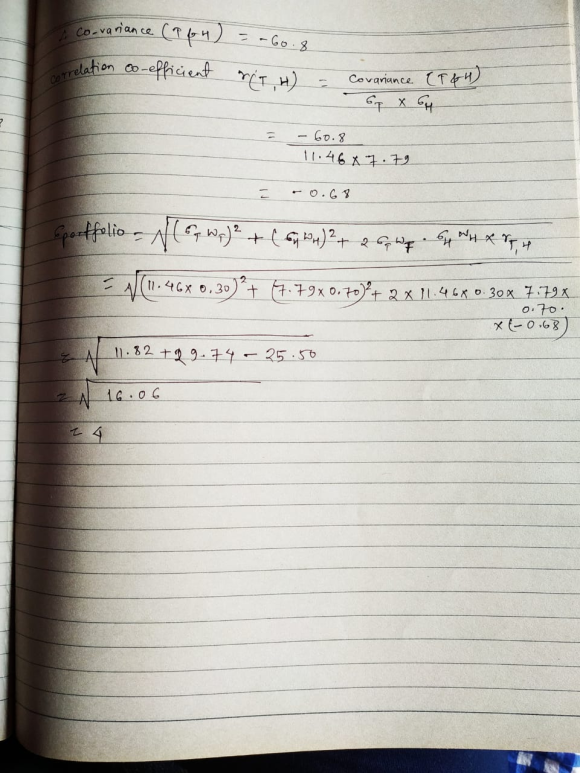 ∴ Co-variance (T & H) = -60.8
Correlation co-efficient r(T, H) = Covariance (T & H) / σT × σH
= -60.8 / 11.46 × 7.79
= -0.68
σportfolio = √(σT WT)² + (σH WH)² + 2 σT WT · σH WH × rT,H
= √(11.46 × 0.30)² + (7.79 × 0.70)² + 2 × 11.46 × 0.30 × 7.79 ×
0.70.
× (-0.68)
= √11.82 + 29.74 - 25.50
= √16.06
= 4